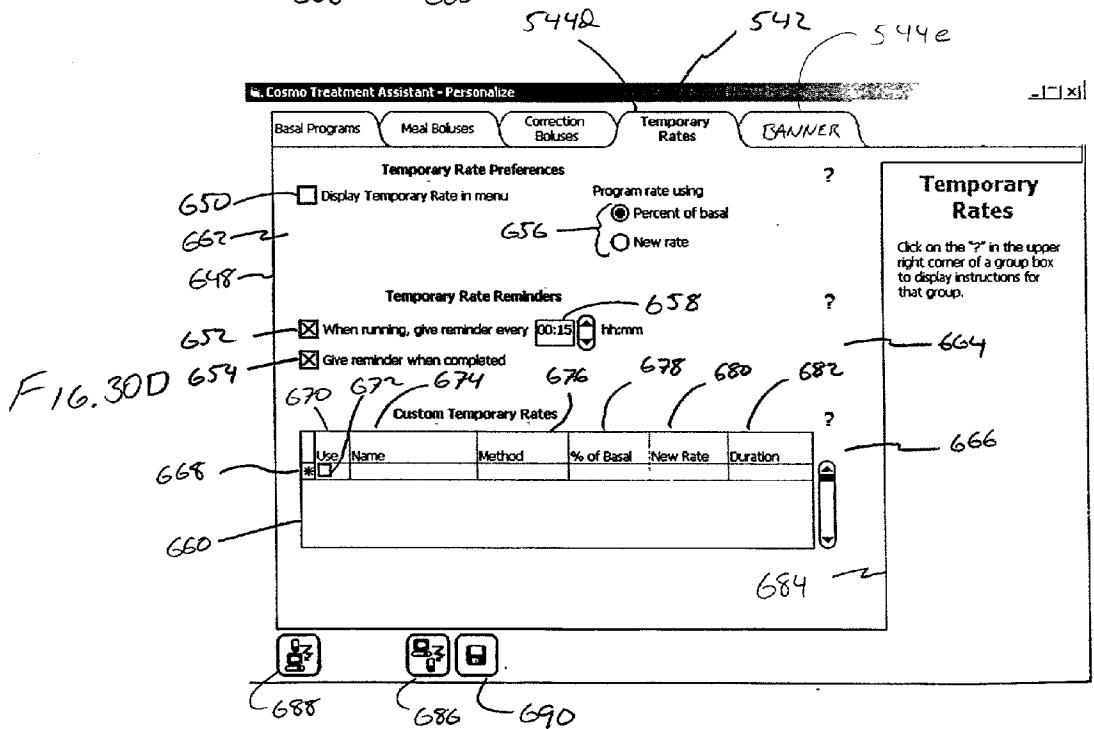 544d 542 544e
Cosmo Treatment Assistant - Personalize
Basal Programs Meal Boluses Correction Boluses Temporary Rates BANNER
Temporary Rate Preferences ?
650 Display Temporary Rate in menu
Program rate using
656 Percent of basal
New rate
662
648
Temporary Rates
Click on the "?" in the upper
right corner of a group box
to display instructions for
that group.
Temporary Rate Reminders 658 ?
652 When running, give reminder every 00:15 hh:mm
664
654 Give reminder when completed
FIG. 30D
670 672 674 676 678 680 682
Custom Temporary Rates ?
666
Use Name Method % of Basal New Rate Duration
668 *
660
684
688 686 690